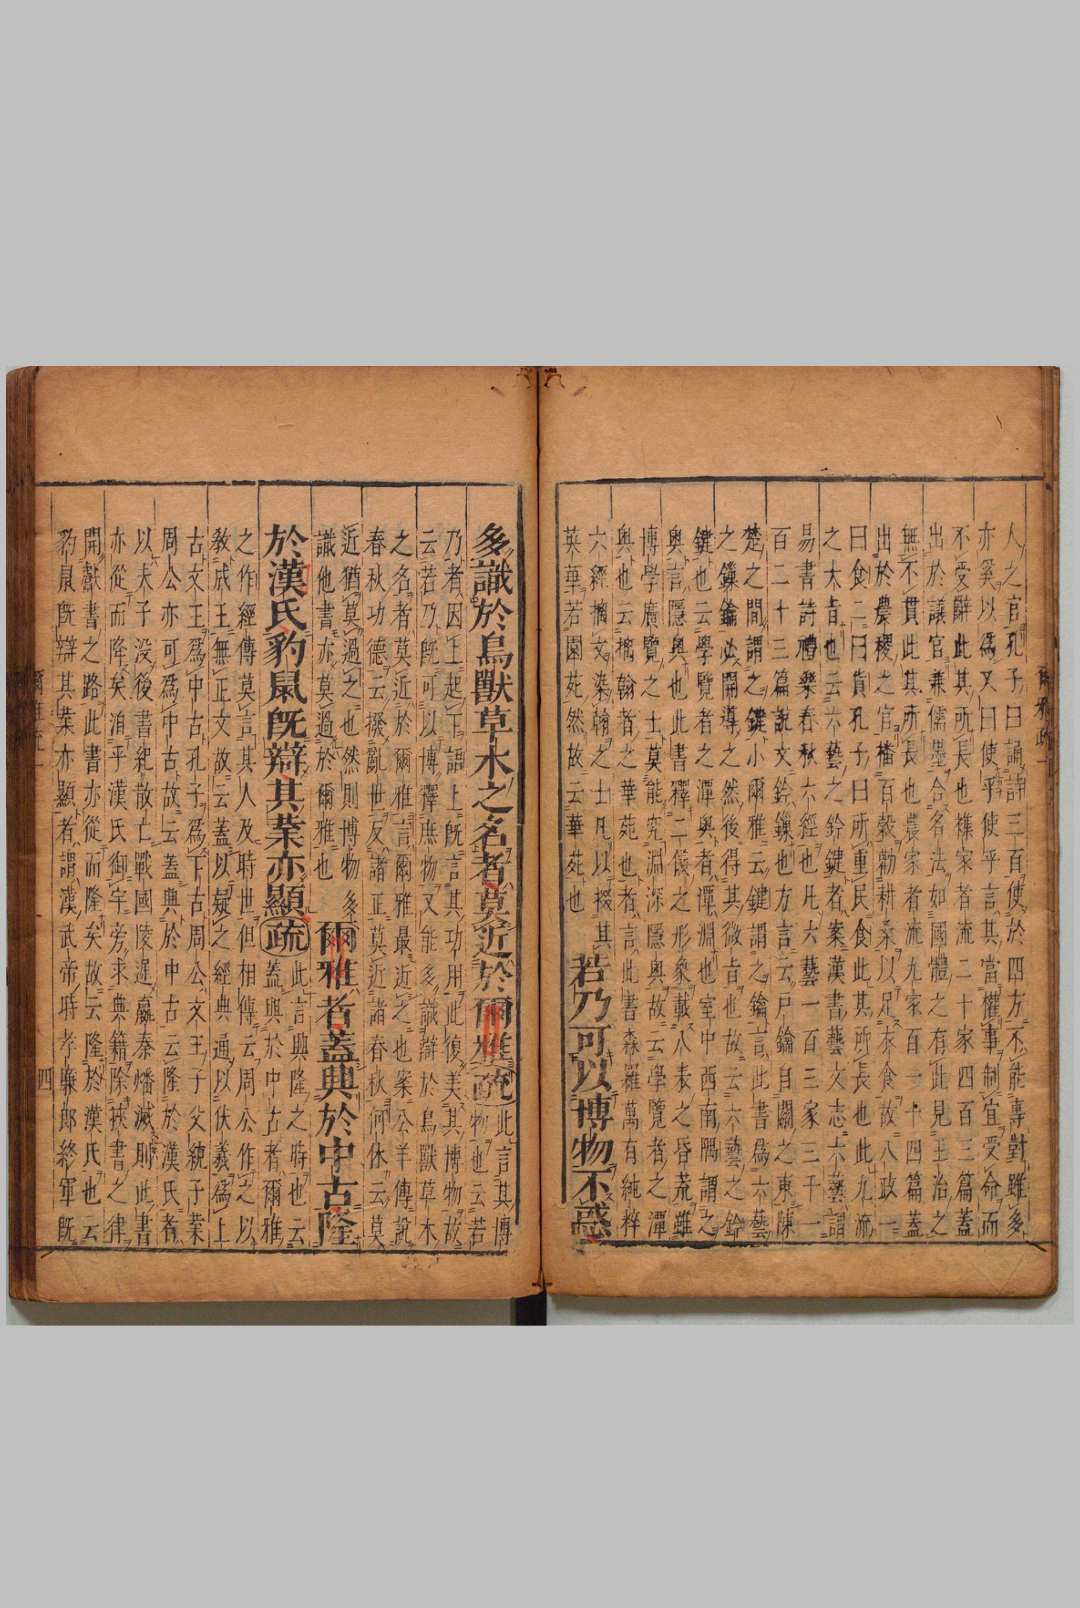 人之官孔子曰誦詩三百使於四方不能專對雖多
亦奚以爲又曰使乎使乎言其當權事制宜受命而
不受辭此其所長也襍家者流二十家四百三篇蓋
出於議官兼儒墨合名法如國體之有此見王治之
無不貫此其所長也農家者流九家百一十四篇蓋
出於農稷之官播百穀勸耕桑以足衣食故八政一
曰食二曰貨孔子曰所重民食此其所長也此九流
之大旨也云六藝之鈐鍵者案漢書藝文志六藝謂
易書詩禮樂春秋六經也凡六藝一百三家三千一
百二十三篇說文鈐鏁也方言云戶鑰自關之東陳
楚之間謂之鍵小爾雅云鍵謂之鑰言此書爲六藝
之鏁鑰必開導之然後得其微旨也故云六藝之鈐
鍵也云學覽者之潭奧者潭淵也室中西南隅謂之
奧言隱奧也此書釋二儀之形象載八表之昏荒雖
博學廣覽之士莫能究淵深隱奧故云學覽者之潭
奧也云摛翰者之華苑也者言此書森羅萬有純粹
六經摛文染翰之士凡以掇其
英華若園苑然故云華苑也
若乃可以博物不惑
多識於鳥獸草木之名者莫近於爾雅
疏
此言其博
物也云若
乃者因上起下語上旣言其功用此復美其博物故
云若乃旣可以博釋庶物又能多識辯於鳥獸草木
之名者莫近於爾雅言爾雅最近之也案公羊傳說
春秋功德云撥亂世反諸正莫近諸春秋何休云莫
近猶莫過之也然則博物多
識他書亦莫過於爾雅也
爾雅者蓋興於中古隆
於漢氏豹鼠旣辯其業亦顯
疏
此言興隆之時也云
蓋興於中古者爾雅
之作經傳莫言其人及時世但相傳云周公作之以
敎成王無正文故云蓋以疑之經典通以伏羲爲上
古文王爲中古孔子爲下古周公文王子父統子業
周公亦可爲中古故云蓋興於中古云隆於漢氏者
以夫子没後書紀散亡戰國陵遲嬴秦燔滅則此書
亦從而降矣洎乎漢氏御宇旁求典籍除挾書之律
開獻書之路此書亦從而隆矣故云隆於漢氏也云
豹鼠旣辯其業亦顯者謂漢武帝時孝廉郎終軍旣
四